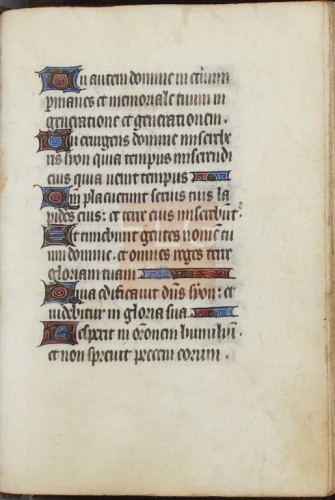 Tu autem domine in eternum
p̲manes et memoriale tuum in
generatione et generationem.
Tu exurgens domine misereb̲e
ris syon quia tempus miserendi
eius quia venit tempus
Qm̄ placuerunt servis tuis la
pides eius: et terre eius miserebūt̲ᵉ
Et timebunt gentes nomē tu
um domine. et omnes reges terre
gloriam tuam
Quia edificavit dn̄s syon: et
videbitur in gloria sua
Respexit in orōnem humiliū.
et non sprevit precem eorum.